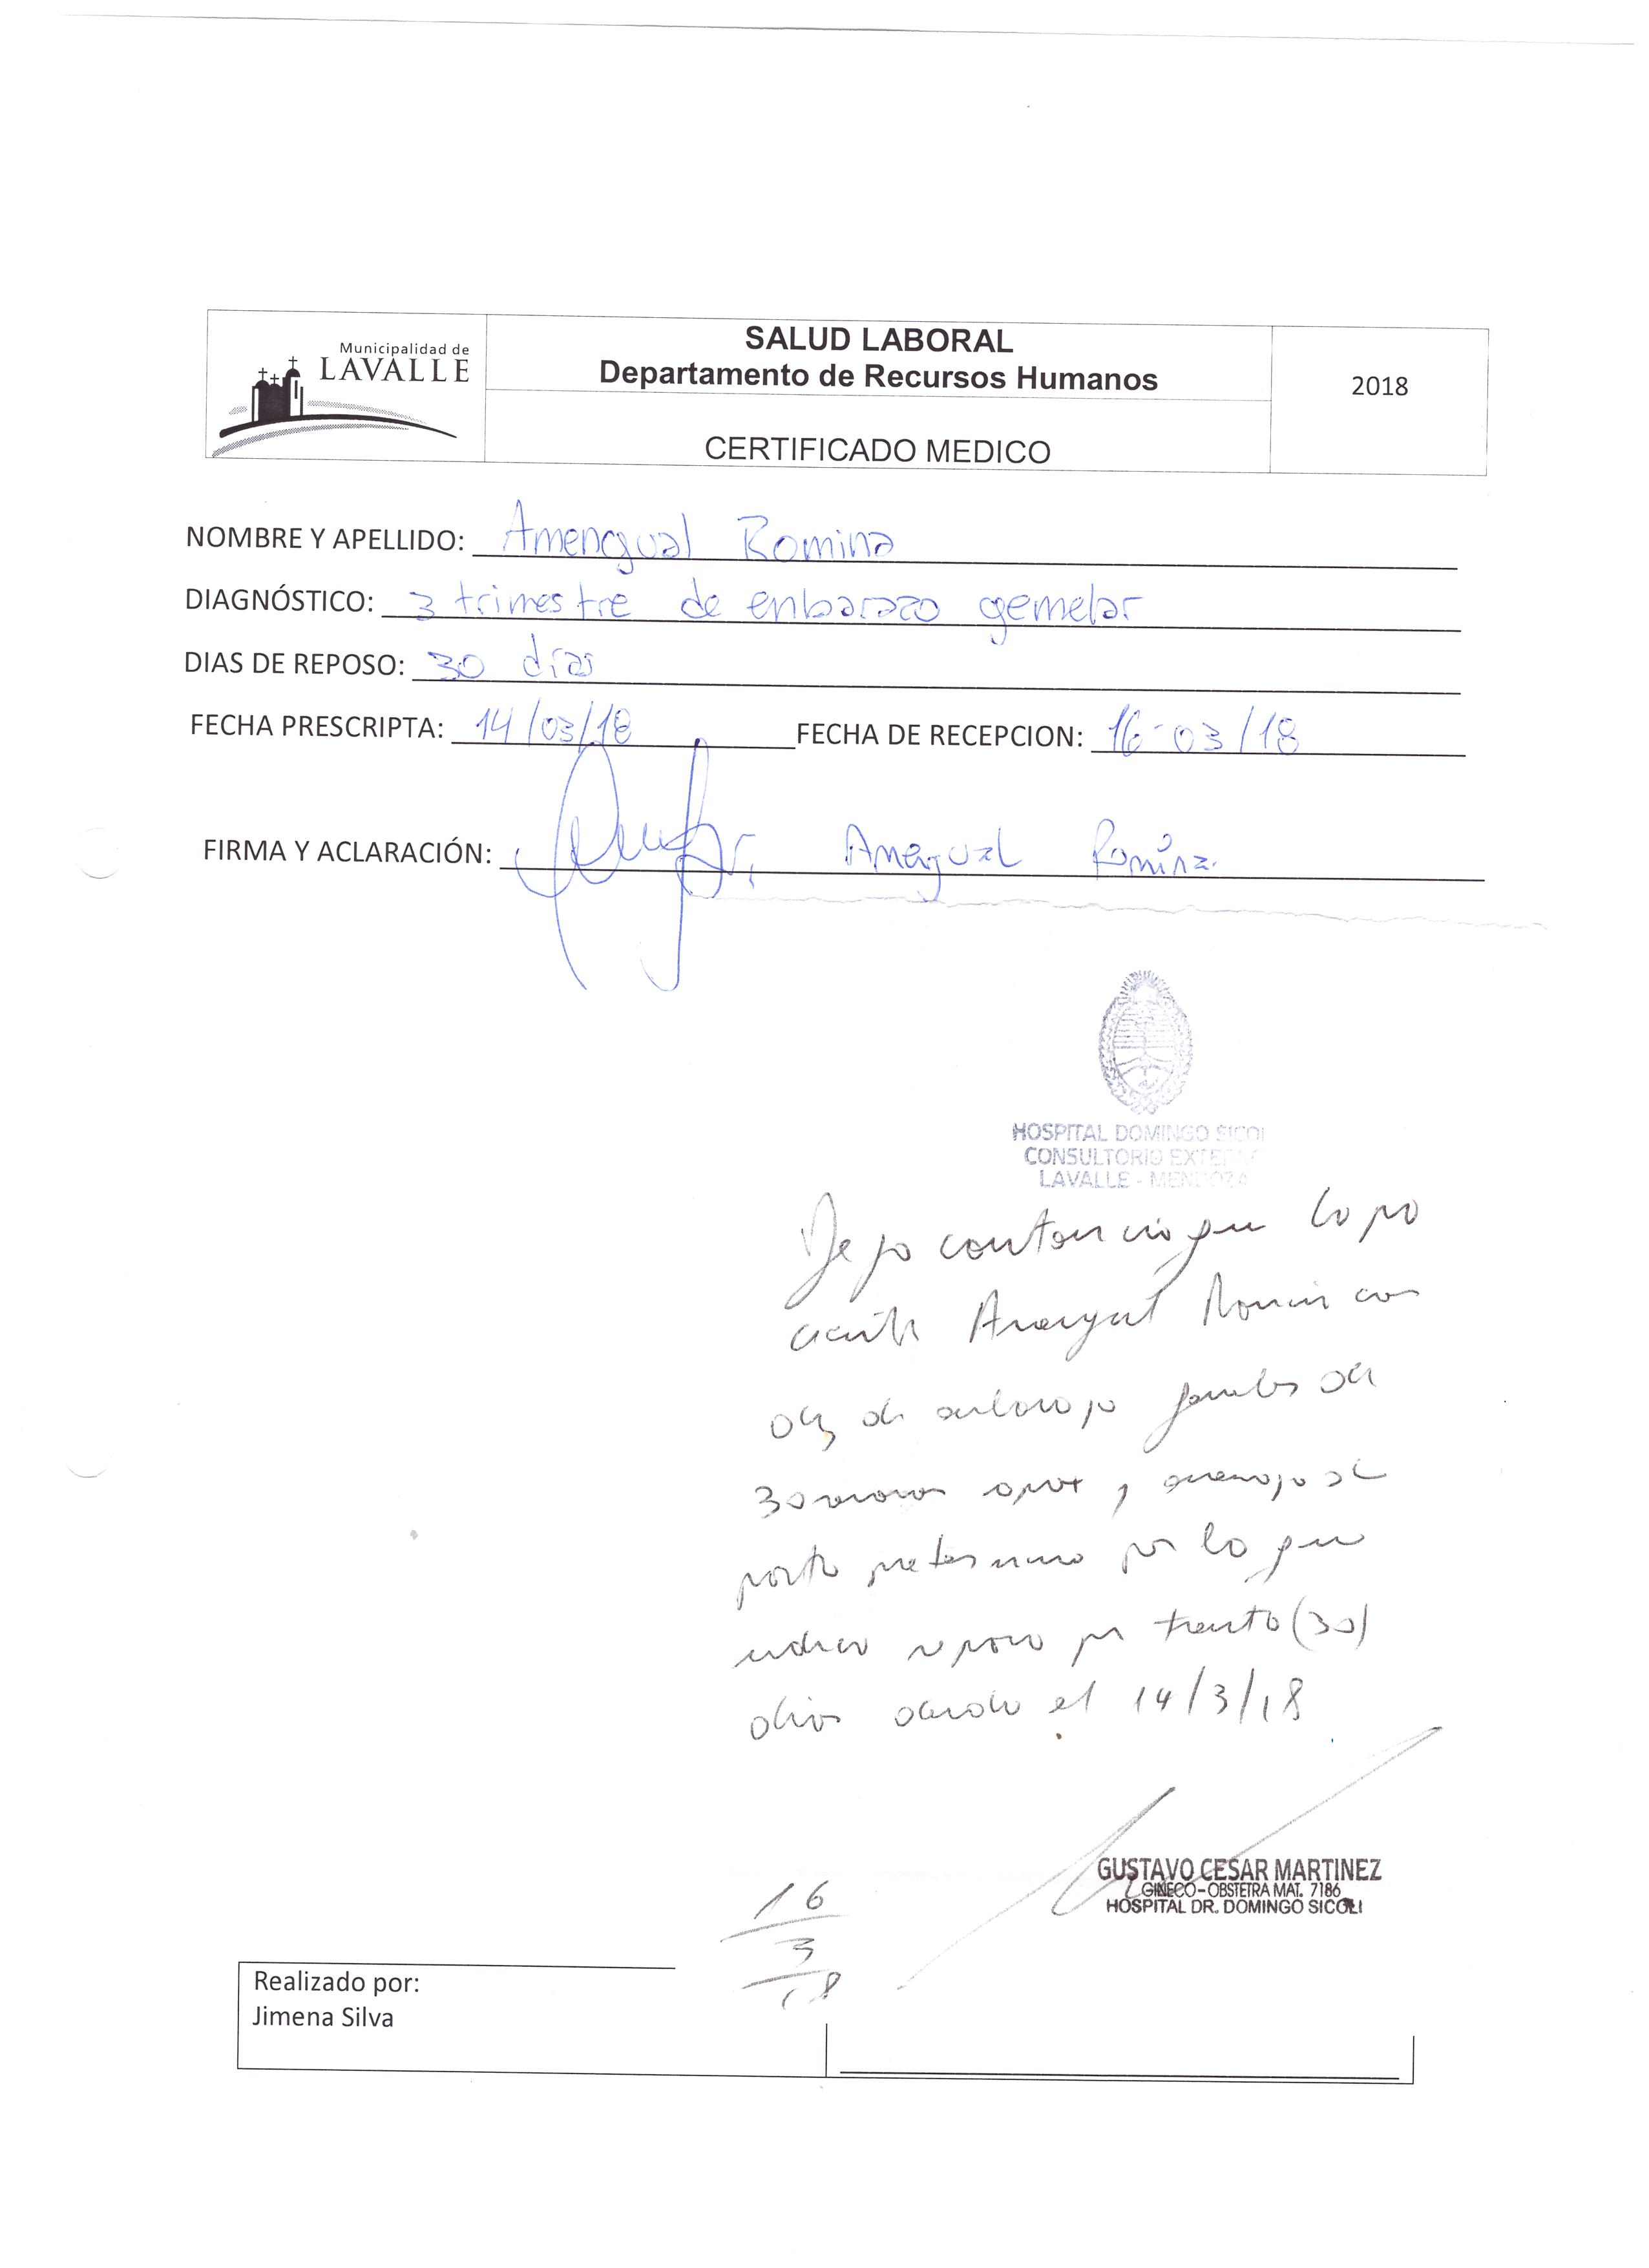 Municipalidad de
LAVALLE
SALUD LABORAL
Departamento de Recursos Humanos
CERTIFICADO MEDICO
2018
NOMBRE Y APELLIDO: Amengual Romina
DIAGNÓSTICO: 3 trimestre de enbarazo gemelar
DIAS DE REPOSO: 30 días
FECHA PRESCRIPTA: 14/03/18 FECHA DE RECEPCION: 16-03/18
FIRMA Y ACLARACIÓN: Amengual Romina
HOSPITAL DOMINGO SICOLI
CONSULTORIO EXTERNO
LAVALLE - MENDOZA
Dejo constancia que la pa
ciente Amengual Romina cur
de embarazo gemelar de
30 semanas aprox y amenaza de
parto pretermino por lo que
indico reposo por treinta (30)
dias desde el 14/3/18
GUSTAVO CESAR MARTINEZ
GINECO-OBSTETRA MAT. 7186
HOSPITAL DR. DOMINGO SICOLI
16
3
18
Realizado por:
Jimena Silva